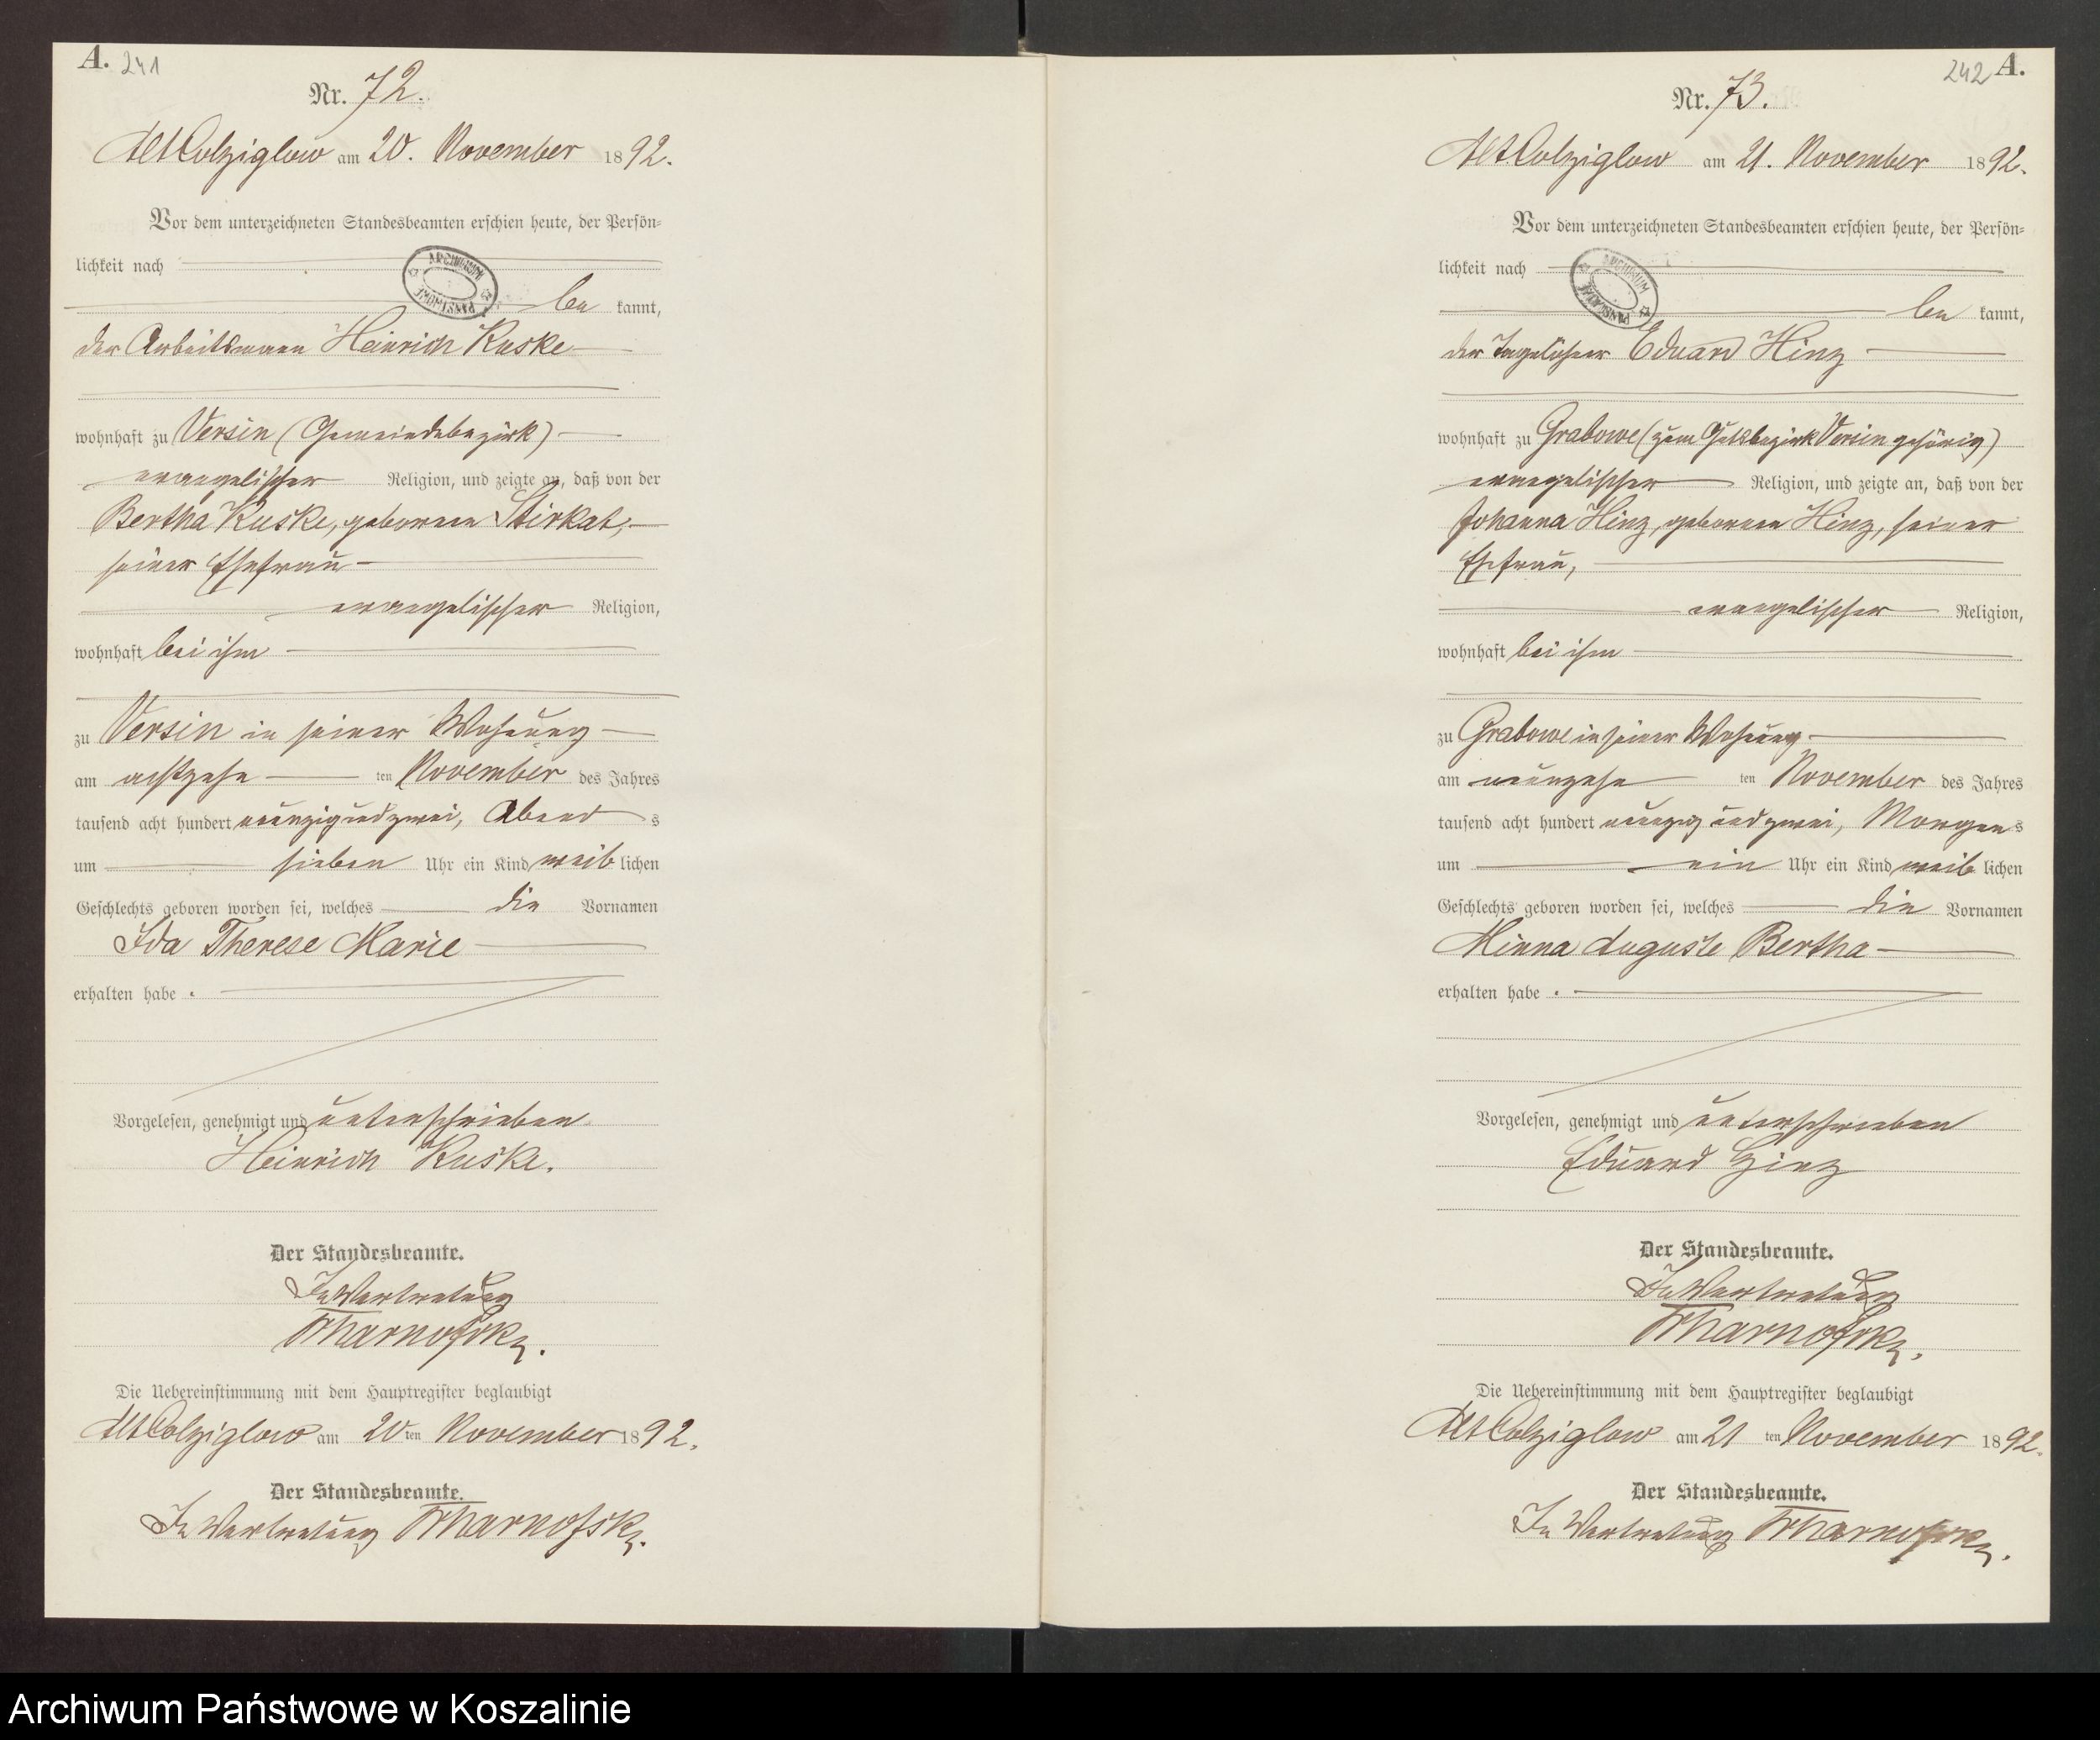 A. 241
Nr. 72.
Alt Colziglow am 20. November 1892.
Vor dem unterzeichneten Standesbeamten erschien heute, der Persön-
lichkeit nach
be kannt,
der Arbeitsmann Heinrich Kuske
wohnhaft zu Versin (Gemeindebezirk)
evangelischer Religion, und zeigte an, daß von der
Bertha Kuske, geborenen Stirkat,
seiner Ehefrau
evangelischer Religion,
wohnhaft bei ihm
zu Versin in seiner Wohnung
am achtzehn ten November des Jahres
tausend acht hundert neunzig und zwei, Abend s
um sieben Uhr ein Kind weib lichen
Geschlechts geboren worden sei, welches die Vornamen
Ida Therese Marie
erhalten habe.
Vorgelesen, genehmigt und unterschrieben
Heinrich Kuske.
Der Standesbeamte.
In Vertretung
Die Uebereinstimmung mit dem Hauptregister beglaubigt
Alt Colziglow am 20 ten November 1892.
Der Standesbeamte.
In Vertretung
242 A.
Nr. 73.
Alt Colziglow am 21. November 1892.
Vor dem unterzeichneten Standesbeamten erschien heute, der Persön-
lichkeit nach
be kannt,
der Tagelöhner Eduard Hinz
wohnhaft zu Grabowe (zum Gutsbezirk Versin gehörig)
evangelischer Religion, und zeigte an, daß von der
Johanna Hinz, geborenen Hinz, seiner
Ehefrau,
evangelischer Religion,
wohnhaft bei ihm
zu Grabowe in seiner Wohnung
am neunzehn ten November des Jahres
tausend acht hundert neunzig und zwei, Morgen s
um ein Uhr ein Kind weib lichen
Geschlechts geboren worden sei, welches die Vornamen
Minna Auguste Bertha
erhalten habe.
Vorgelesen, genehmigt und unterschrieben
Eduard Hinz
Der Standesbeamte.
In Vertretung
Die Uebereinstimmung mit dem Hauptregister beglaubigt
Alt Colziglow am 21 ten November 1892.
Der Standesbeamte.
In Vertretung
Archiwum Państwowe w Koszalinie